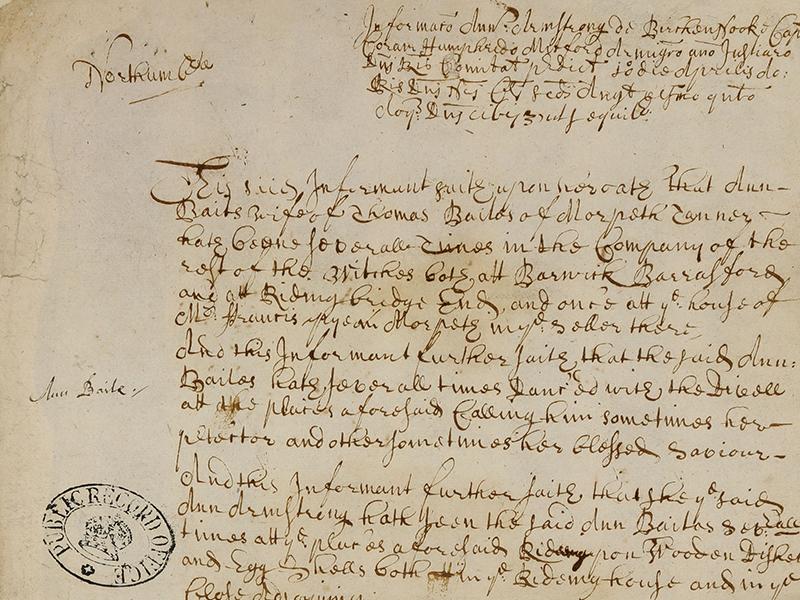 Northumb
Informaco Ann Armstrong de Birchen Nooke
Coram Humphredo Mitford Armigro
Comitat predict die Aprilis
This said Informant saith upon her oath that Ann
Baits wife of Thomas Baites of Morpeth Tanner
hath beene severall Times in the Company of the
rest of the Witches both att Barwick Barrasford
and att Riding bridge End and once att ye house of
Mr Francis Pye in Morpeth in ye seller there
And this Informant further saith that the said Ann:
Baites hath severall times Danc'ed with the Divell
att the places aforesaid Calling him sometimes her
ptector and other sometimes her blessed Saviour
Ann Baite
And this Informant further saith that she ye said
Ann Armstrong hath seen the said Ann Baites severall
times att ye places aforesaid Rideing upon Wooden Dishes
and Egg Shells both in ye Rideing house and in ye
close adjoyning
PUBLIC RECORD OFFICE